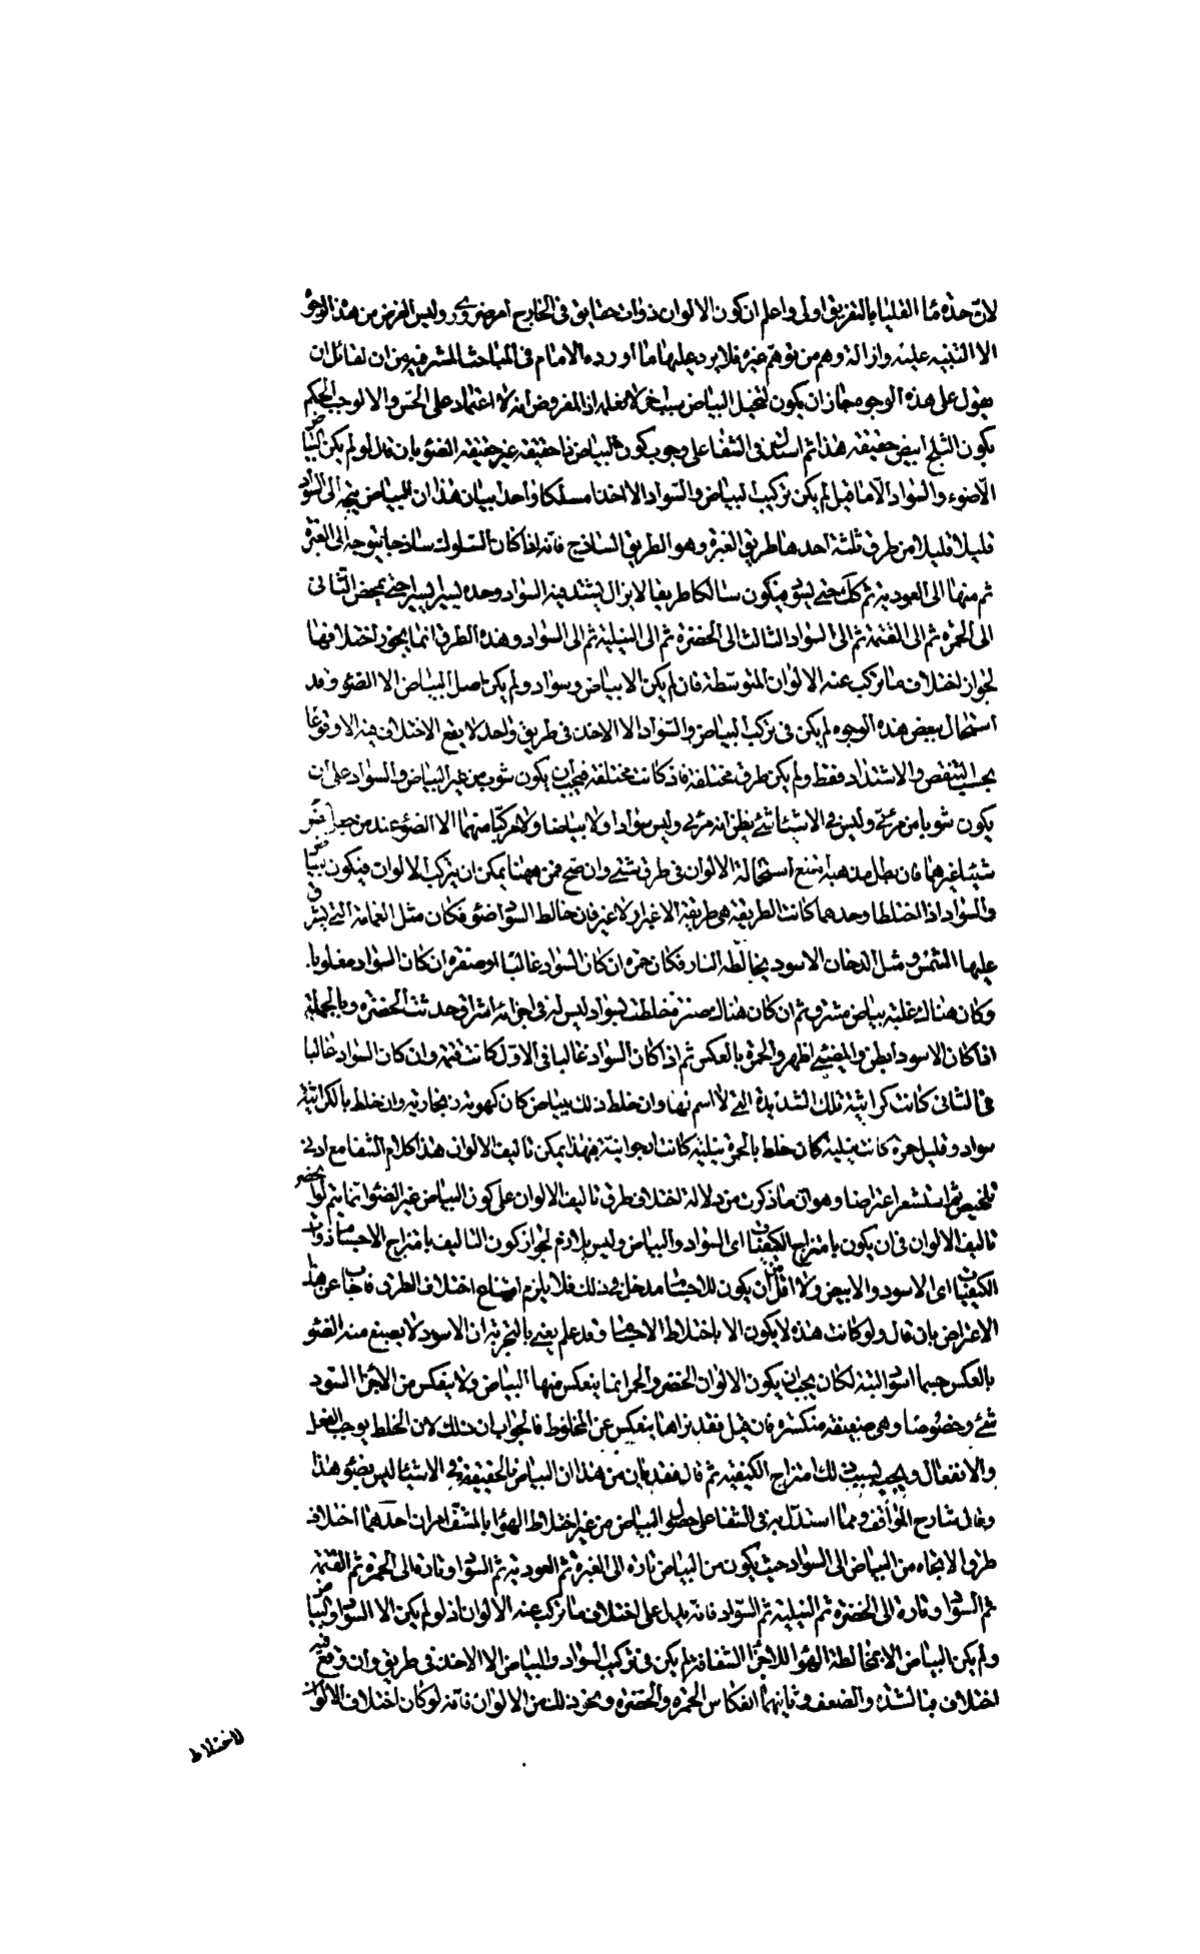 لان حدة ماء القليا بالتفريق اولى واعلم ان كون الالوان ذوات حقايق في الخارج امر ضروري وليس الغرض من هذه الوجوه
الا التنبيه عليه وازالة وهم من توهم غيره فلا يرد عليها ما اورده الامام في المباحث المشرقية من ان لقائل ان
يقول على هذه الوجوه جاز ان يكون لتخيل البياض سبب اخر لا نعلمه اذ المفروض انه لا اعتماد على الحس والا لوجب الحكم
بكون الثلج ابيض حقيقة هذا ثم استدل الشيخ في الشفا على وجوب كون البياض ذا حقيقة غير حقيقة الضوء بان قال لو لم يكن البياض
الا ضوء والسواد الا ما قيل لم يكن تركيب البياض والسواد الا اخذا مسلكا واحدا بيان هذا ان البياض يتجه الى السواد
قليلا قليلا من طرق ثلثة احدها طريق الغبرة وهو الطريق الساذج فانه اذا كان السلوك ساذجا يتوجه الى الغبرة
ثم منها الى العودية ثم كك حتى يسود فيكون سالكا طريقا لا يزال يشتد فيه السواد وحده يسيرا يسيرا حتى يمحض الثاني
الى الحمرة ثم الى القتمة ثم الى السواد الثالث الى الخضرة ثم الى النيلية ثم الى السواد وهذه الطرق انما يجوز اختلافها
لجواز اختلاف ما يركب عنه الالوان المتوسطة فان لم يكن الا بياض وسواد ولم يكن اصل البياض الا الضوء وقد
استحال ببعض هذه الوجوه لم يكن في تركيب البياض والسواد الا الاخذ في طريق واحد لا يقع الاختلاف فيه الا وقوعا
بحسب التنقص والاشتداد فقط ولم يكن طرق مختلفة فاذ كانت مختلفة فيجب ان يكون شوب من غير البياض والسواد على ان
يكون شوبا من مرئي وليس في الاشياء شئ يظن انه مرئي وليس سوادا ولا بياضا ولا مركبا منهما الا الضوء عند من جعل الضوء
شيئا غيرهما فان بطل مذهبه امتنع استحالة الالوان في طرق شتى وان صح فمن ههنا يمكن ان يركب الالوان فيكون البياض
والسواد اذا اختلطا وحدهما كانت الطريقة هي طريقة الاغبرار لا غير فان خالط السواد ضوء فكان مثل الغمامة التي يشرق
عليها الشمس ومثل الدخان الاسود يخالطه النار فكان حمرة ان كان السواد غالبا او صفرة ان كان السواد مغلوبا
وكان هناك غلبة بياض مشرق ثم ان كان هناك صفرة خلطت بسواد ليس له في اجزائه اشراق حدثت الخضرة وبالجملة
اذا كان الاسود ابطن والمضيئ اظهر والحمرة بالعكس ثم اذا كان السواد غالبا في الاول كانت قتمة وان كان السواد غالبا
في الثاني كانت كراثية تلك الشديدة التي لا اسم لها وان خلط ذلك ببياض كان كهوبة زنجارية وان خلط بالكراثية
سواد وقليل حمرة كانت نيلية كان خلط بالحمرة نيلية كانت ارجوانية فهذا يمكن تاليف الالوان هذا كلام الشفا مع ادنى
تلخيص ثم استشعر اعتراضا وهو ان ما ذكرت من دلالة اختلاف طرق تاليف الالوان على كون البياض غير الضوء انما يتم لو انحصر
تاليف الالوان في ان يكون بامتزاج الكيفيات اى السواد والبياض وليس بلازم لجواز كون التاليف بامتزاج الاجسام ذوات
الكيفيات اى الاسود والابيض ولا اقل من ان يكون للاجسام مدخل في ذلك فلا يلزم امتناع اختلاف الطرق فاجاب عن هذا
الاعتراض بان قال ولو كانت هذه لا يكون الا باختلاط الاجسام وقد علم يعني بالتجربة ان الاسود لا يصبغ منه الضوء
بالعكس جسما اسود البتة لكان يجب ان يكون الالوان الخضر والحمر انما ينعكس منها البياض ولا ينعكس من الاجزاء السود
شئ وخصوصا وهي ضعيفة منكسرة فان قيل فقد نراها ينعكس عن المخلوط فالجواب ان ذلك لان الخلط يوجب الفعل
والانفعال ويجب بسبب ذلك امتزاج الكيفية ثم قال فقد بان من هذا ان البياض بالحقيقة في الاشياء ليس بضوء هذا
وقال شارح المواقف ومما استدل به في الشفا على حصول البياض من غير اختلاط الهواء بالمشف امران احدهما اختلاف
طرق الاتجاه من البياض الى السواد حيث يكون من البياض تارة الى الغبرة ثم العودية ثم السواد وتارة الى الحمرة ثم القتمة
ثم السواد وتارة الى الخضرة ثم النيلية ثم السواد فانه يدل على اختلاف ما يركب عنه الالوان اذ لو لم يكن الا السواد والبياض
ولم يكن البياض الا بمخالطة الهواء للاجزاء الشفافة لم يكن في تركيب السواد والبياض الا الاخذ في طريق وان وقع فيه
اختلاف فبالشدة والضعف وثانيهما انعكاس الحمرة والخضرة ونحو ذلك من الالوان فانه لو كان اختلاف الالوان
لاختلاط